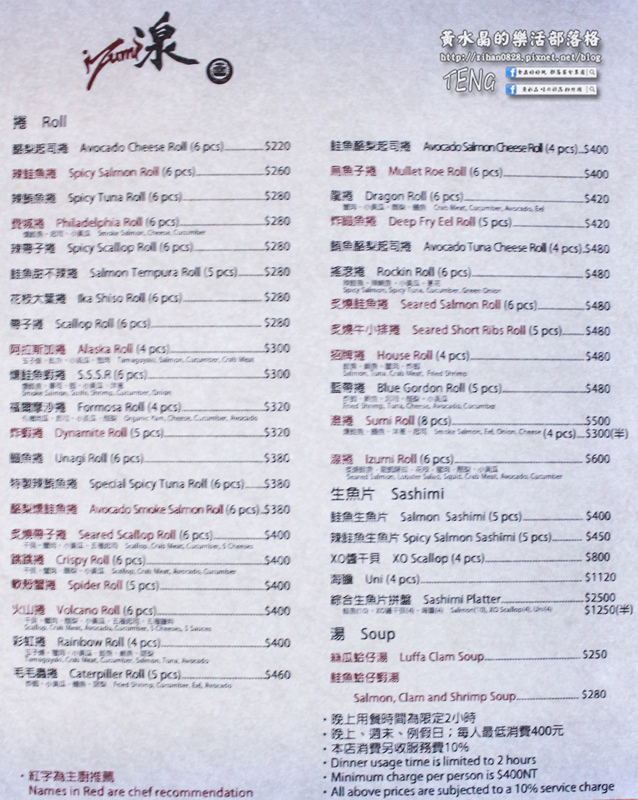 iYumi 湶
黃水晶的樂活部落格
http://zihan0828.pixnet.net/blog
TENG
捲 Roll
酪梨起司捲 Avocado Cheese Roll (6 pcs) $220
辣鮭魚捲 Spicy Salmon Roll (6 pcs) $260
辣鮪魚捲 Spicy Tuna Roll (6 pcs) $280
費城捲 Philadelphia Roll (6 pcs) $280
Smoke Salmon, Cheese, Cucumber
辣帶子捲 Spicy Scallop Roll (6 pcs) $280
鮭魚甜不辣捲 Salmon Tempura Roll (5 pcs) $280
花枝大葉捲 Ika Shiso Roll (6 pcs) $280
帶子捲 Scallop Roll (6 pcs) $280
阿拉斯加捲 Alaska Roll (4 pcs) $300
Tamagoyaki, Salmon, Cucumber, Crab Meat
燻鮭魚蝦捲 S.S.S.R (6 pcs) $300
Smoke Salmon, Sushi, Shrimp, Cucumber, Onion
福爾摩沙捲 Formosa Roll (4 pcs) $320
Organic Yam, Cheese, Cucumber, Avocado
炸蝦捲 Dynamite Roll (5 pcs) $320
鰻魚捲 Unagi Roll (6 pcs) $380
特製辣鮪魚捲 Special Spicy Tuna Roll (6 pcs) $380
酪梨燻鮭魚捲 Avocado Smoke Salmon Roll (6 pcs) $380
炙燒帶子捲 Seared Scallop Roll (6 pcs) $400
Scallop, Crab Meat, Avocado, Cucumber, 5 Cheeses
跳跳捲 Crispy Roll (6 pcs) $400
Scallop, Crab Meat, Avocado, Cucumber
軟殼蟹捲 Spider Roll (5 pcs) $400
火山捲 Volcano Roll (6 pcs) $400
Scallop, Crab Meat, Avocado, Cucumber, 5 Cheeses, 5 Sauces
彩虹捲 Rainbow Roll (4 pcs) $400
Tamagoyaki, Crab Meat, Cucumber, Salmon, Tuna, Avocado
毛毛蟲捲 Caterpiller Roll (5 pcs) $460
Fried Shrimp, Cucumber, Eel, Avocado
・紅字為主廚推薦
Names in Red are chef recommendation
鮭魚酪梨起司捲 Avocado Salmon Cheese Roll (4 pcs) $400
烏魚子捲 Mullet Roe Roll (6 pcs) $400
龍捲 Dragon Roll (6 pcs) $420
Crab Meat, Cucumber, Avocado, Eel
炸鰻魚捲 Deep Fry Eel Roll (5 pcs) $420
鮪魚酪梨起司捲 Avocado Tuna Cheese Roll (4 pcs) $480
搖滾捲 Rockin Roll (6 pcs) $480
Spicy Salmon, Spicy Tuna, Cucumber, Green Onion
炙燒鮭魚捲 Seared Salmon Roll (6 pcs) $480
炙燒牛小排捲 Seared Short Ribs Roll (5 pcs) $480
招牌捲 House Roll (4 pcs) $480
Salmon, Tuna, Crab Meat, Fried Shrimp
藍帶捲 Blue Gordon Roll (5 pcs) $480
Fried Shrimp, Tuna, Cheese, Avocado, Cucumber
Sumi Roll (8 pcs) $500
Smoke Salmon, Eel, Onion, Cheese (4 pcs) $300(半)
湶捲 Izumi Roll (6 pcs) $600
Seared Salmon, Lobster Salad, Squid, Crab Meat, Avocado, Cucumber
生魚片 Sashimi
鮭魚生魚片 Salmon Sashimi (5 pcs) $400
辣鮭魚生魚片 Spicy Salmon Sashimi (5 pcs) $450
XO醬干貝 XO Scallop (4 pcs) $800
海膽 Uni (4 pcs) $1120
綜合生魚片拼盤 Sashimi Platter $2500
Salmon(10), XO Scallop(4), Uni(4) $1250(半)
湯 Soup
絲瓜蛤仔湯 Luffa Clam Soup $250
鮭魚蛤仔蝦湯
Salmon, Clam and Shrimp Soup $280
・晚上用餐時間為限定2小時
・晚上、週末、例假日；每人最低消費400元
・本店消費另收服務費10%
・Dinner usage time is limited to 2 hours
・Minimum charge per person is $400NT
・All above prices are subjected to a 10% service charge